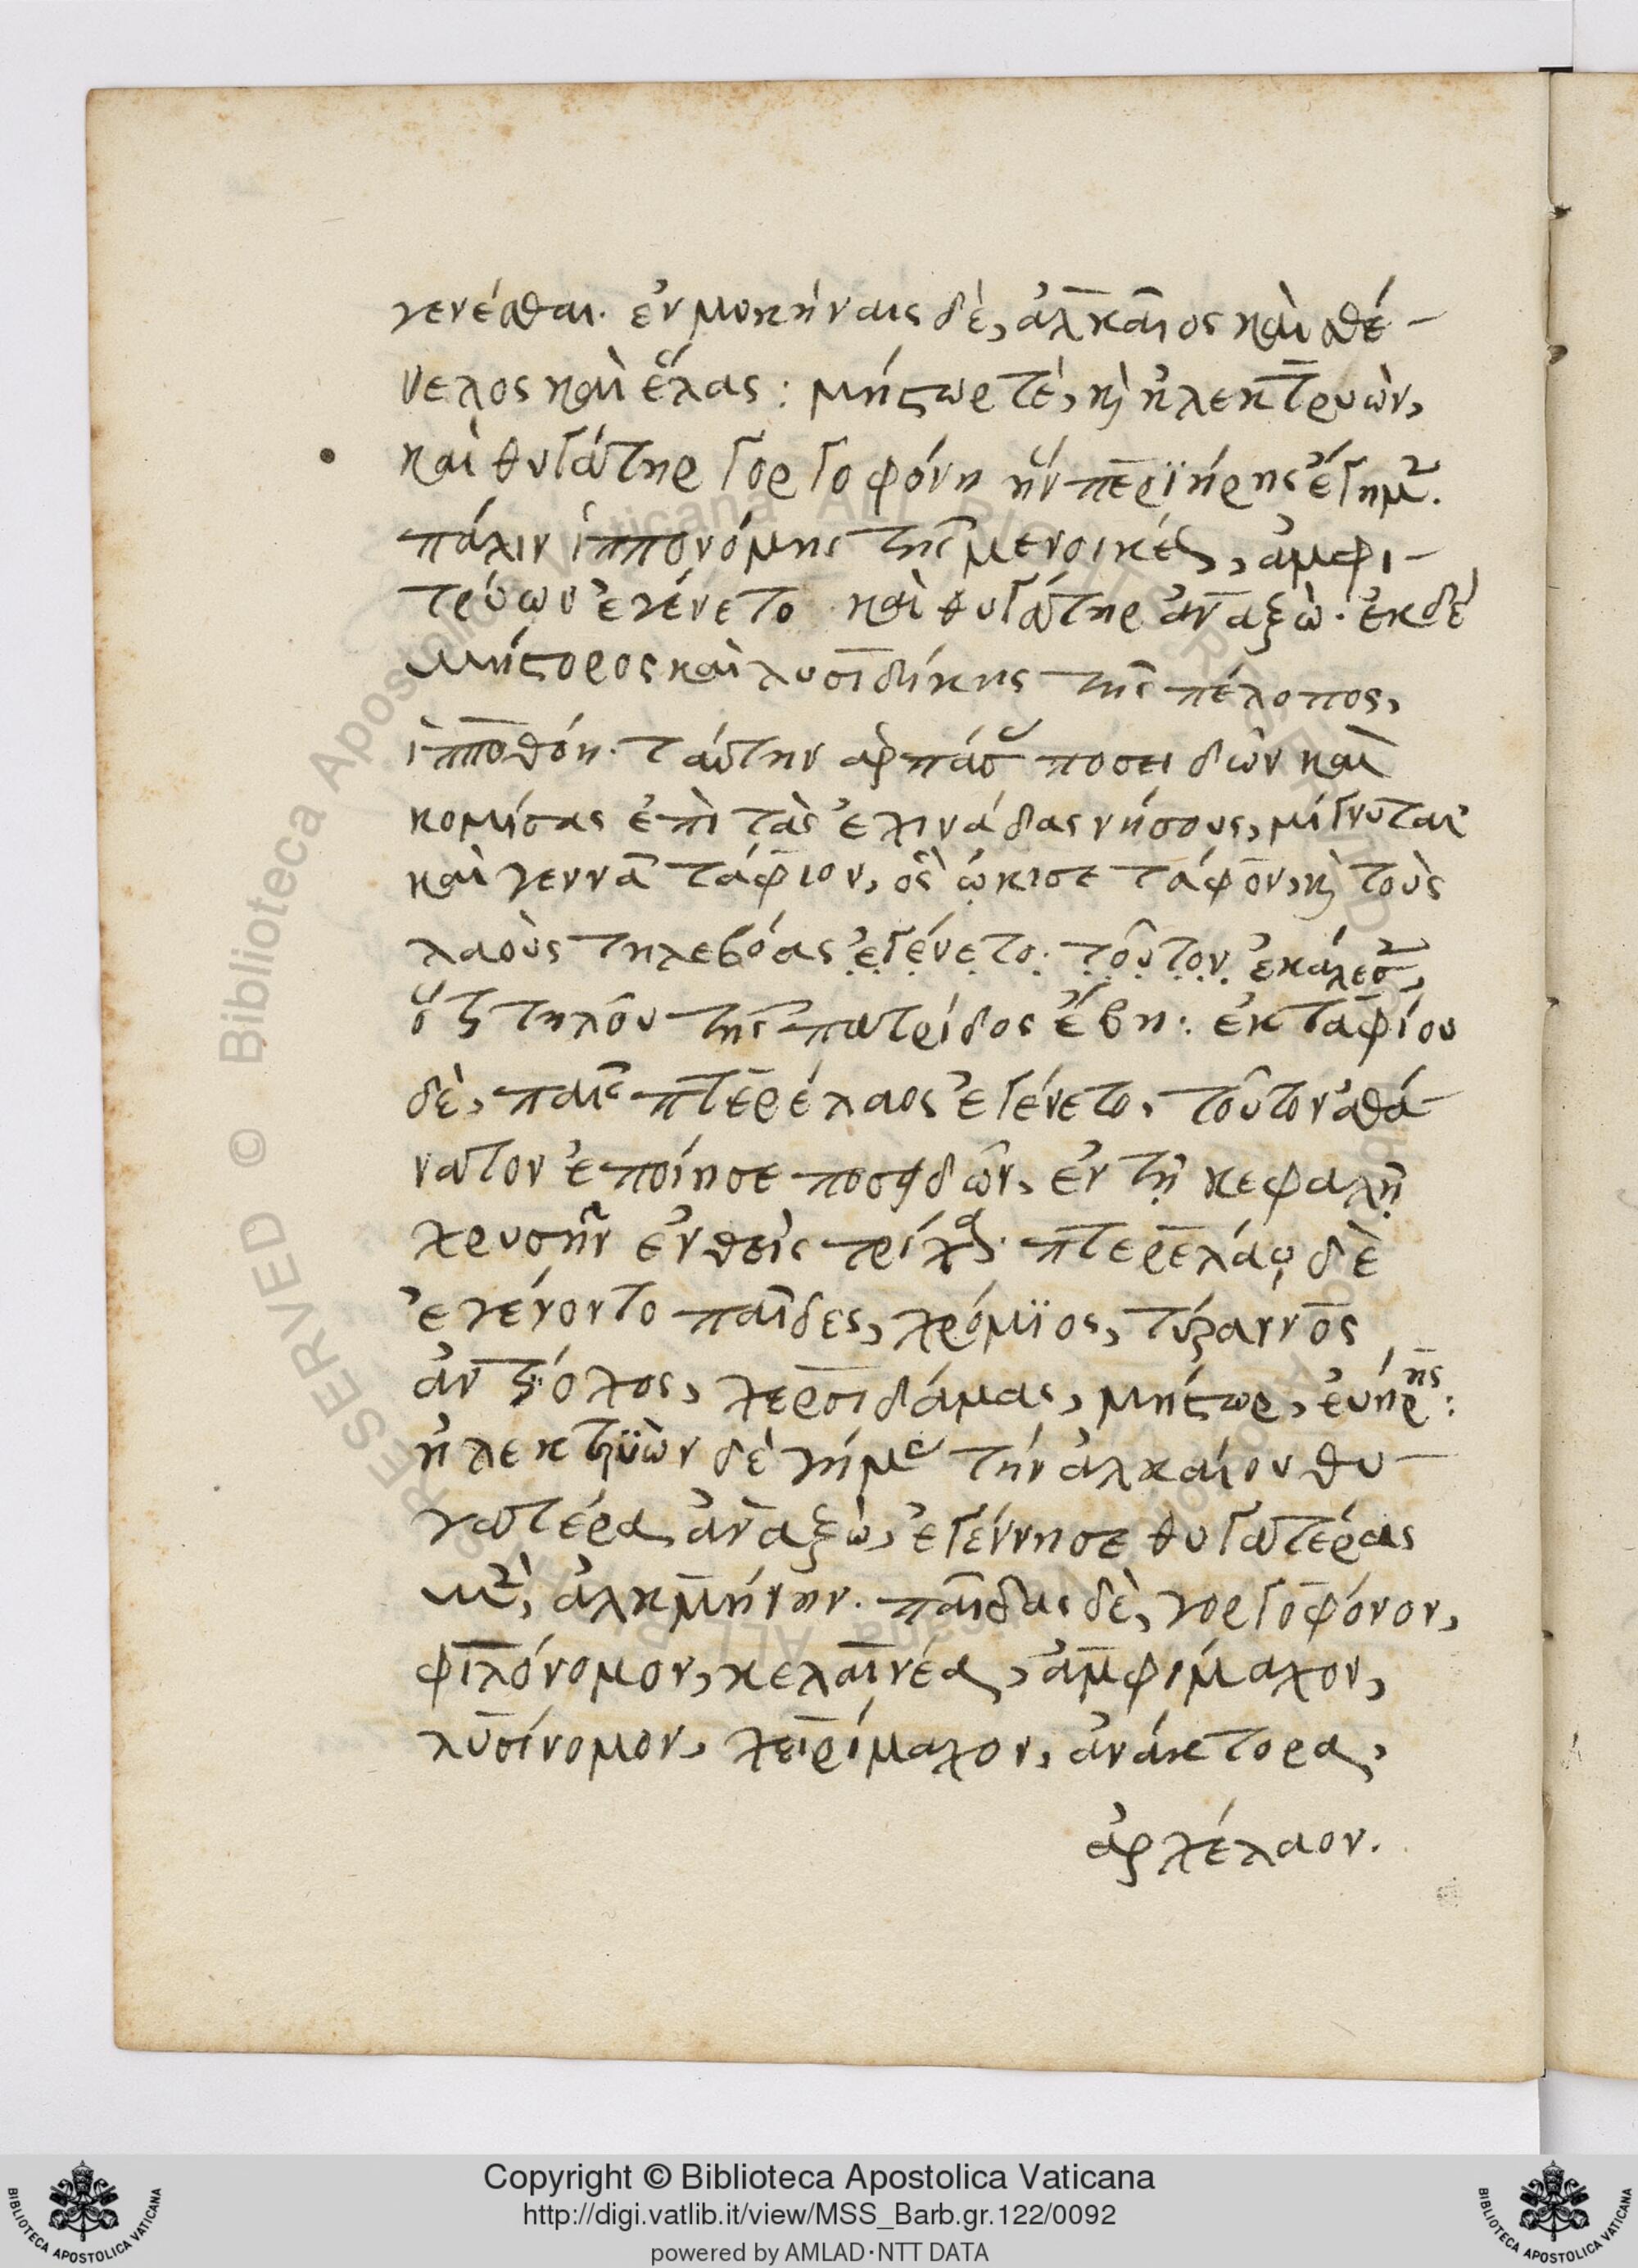 γενέσθαι. ἐν μυκήναις δὲ, ἀλκαῖος καὶ σθέ-
νελος καὶ ἕλας: μήστωρ τὲ, κὶ ἠλεκτρυὼν,
καὶ θυγάτηρ γοργοφόνη ἣν περϊήρης ἔγημε.
πάλιν ἱππονόμης τῆς μενοικέως, ἀμφι-
τρύων ἐγένετο καὶ θυγάτηρ ἀναξώ. ἐκ δὲ
μήστορος καὶ λυσιδήκης τῆς πέλοπος,
ἱπποθόη. ταύτην ἁρπάσας ποσειδῶν καὶ
κομίσας ἐπὶ τὰς ἐχινάδας νήσους, μίγνυται
καὶ γεννᾶ τάφιον, ὃς ᾤκισε τάφον, κὶ τοὺς
λαοὺς τηλεβόας ἐγένετο. τοῦτον ἐκάλεσε,
ὅτι τηλοῦ τῆς πατρίδος ἔβη: ἐκ ταφίου
δὲ, παῖς πτερέλαος ἐγένετο, τοῦτον ἀθά-
νατον ἐποίησε ποσειδῶν, ἐν τῇ κεφαλῇ
χρυσῆν ἐνθεὶς τρίχα. πτερελάῳ δὲ
ἐγένοντο παῖδες, χρόμϊος, τύραννος
ἀντίοχος, χερσιδάμας, μήστωρ, εὐήρης:
ἠλεκτρϋὼν δὲ γήμας τὴν ἀλκαίου θυ-
γατέρα ἀναξὼ, ἐγέννησε θυγατέρας
μὲν, ἀλκμήνην. παῖδας δὲ, γοργοφόνον,
φιλόνομον, κελαινέα, ἀμφίμαχον,
λυσίνομον, χειρίμαχον, ἀνάκτορα,
ἀρχέλαον.
Copyright © Biblioteca Apostolica Vaticana
http://digi.vatlib.it/view/MSS_Barb.gr.122/0092
powered by AMLAD·NTT DATA